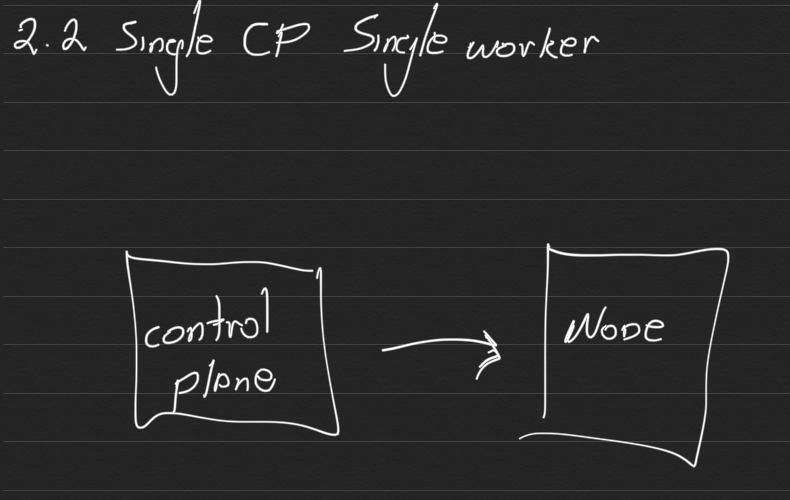 2.2 Single CP Single worker
control
plane
Node